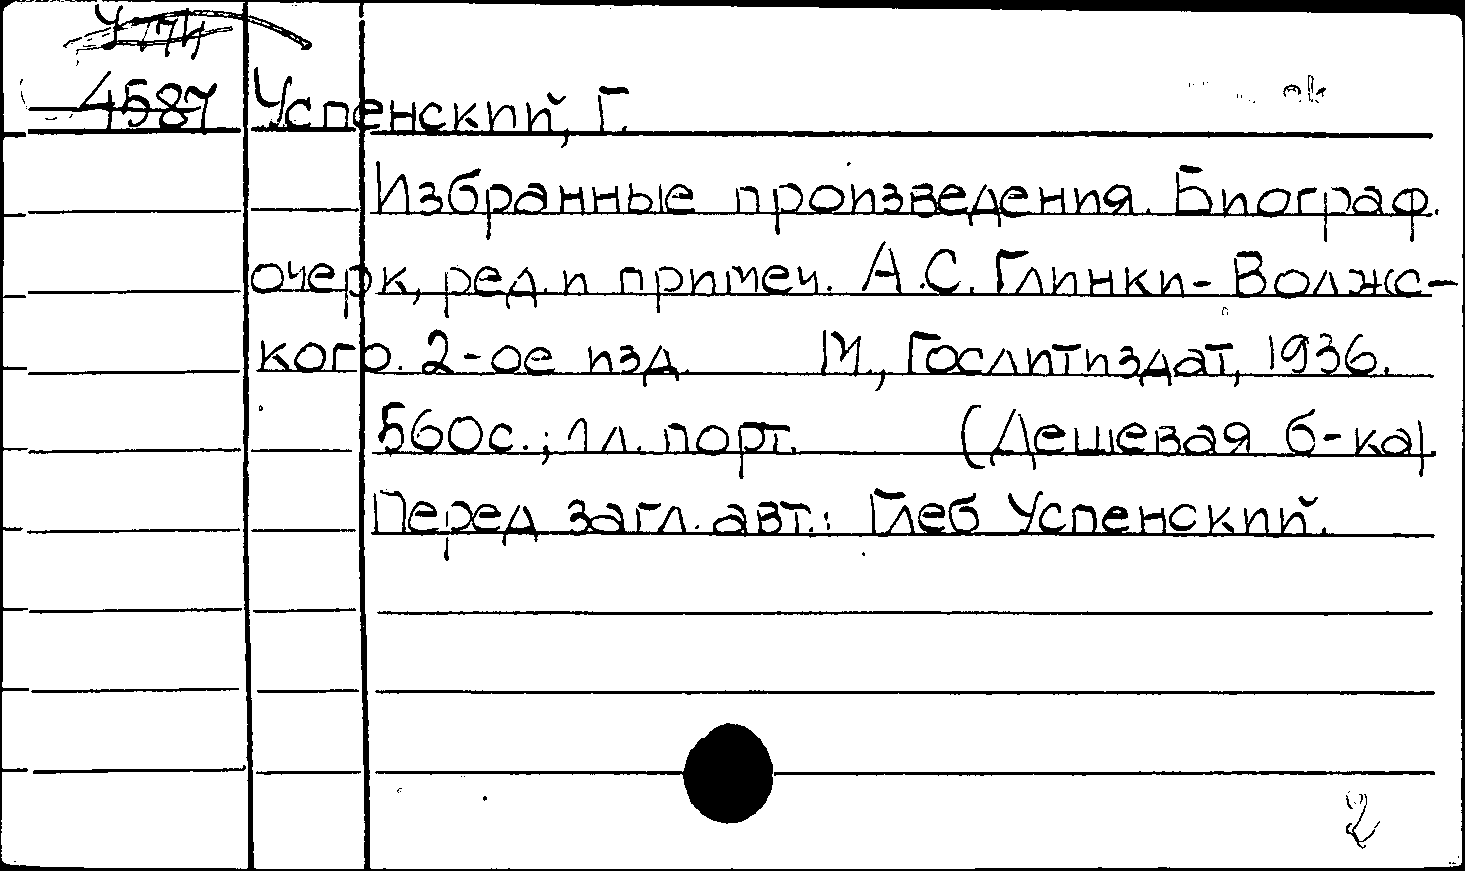 4587 Успенский, Г.
Избранные произведения. Биограф.
очерк, ред. и примеч. А.С. Глинки-Волжс-
кого. 2-ое изд. М., Гослитиздат, 1936.
560с.; 1л. порт. (Дешевая б-ка).
Перед загл. авт.: Глеб Успенский.
2